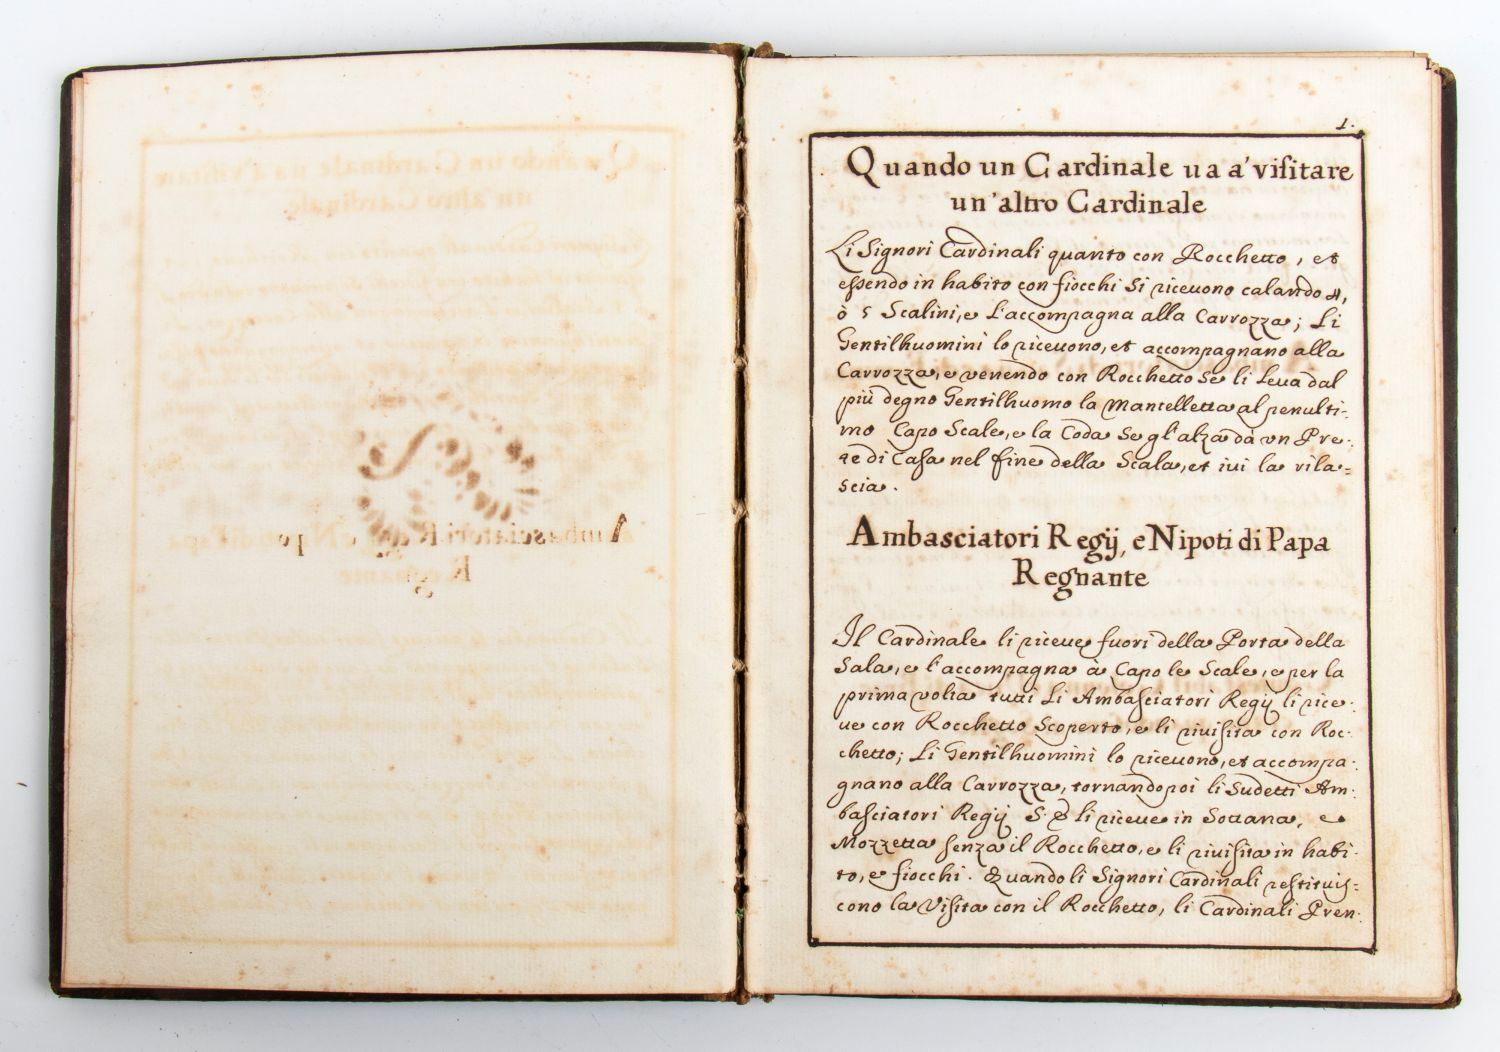 1.
Quando un Cardinale ua a' visitare
un'altro Cardinale
Li Signori Cardinali quanto con Rocchetto, et
essendo in habito con fiocchi si riceuono calando 4,
ò 5 Scalini, e l'accompagna alla Carrozza; Li
Gentilhuomini lo riceuono, et accompagnano alla
Carrozza, e venendo con Rocchetto se li leua dal
più degno Gentilhuomo la Mantelletta al penulti-
mo Capo Scale, e la Coda se gl'alza da vn Pre-
te di Casa nel fine della Scala, et iui la rila=
scia.
Ambasciatori Regij, e Nipoti di Papa
Regnante
Il Cardinale li riceue fuori della Porta della
Sala, e l'accompagna à Capo le Scale, e per la
prima volta tutti Li Ambasciatori Regij li rice-
ue con Rocchetto Scoperto, e li riuisita con Roc-
chetto; Li Gentilhuomini lo riceuono, et accompa-
gnano alla Carrozza, tornando poi li Sudetti Am-
basciatori Regij S. E. li riceue in Sottana, e
Mozzetta senza il Rocchetto, e li riuisita in habi-
to, e fiocchi. Quando li Signori Cardinali restituis-
cono la Visita con il Rocchetto, li Cardinali Pren-